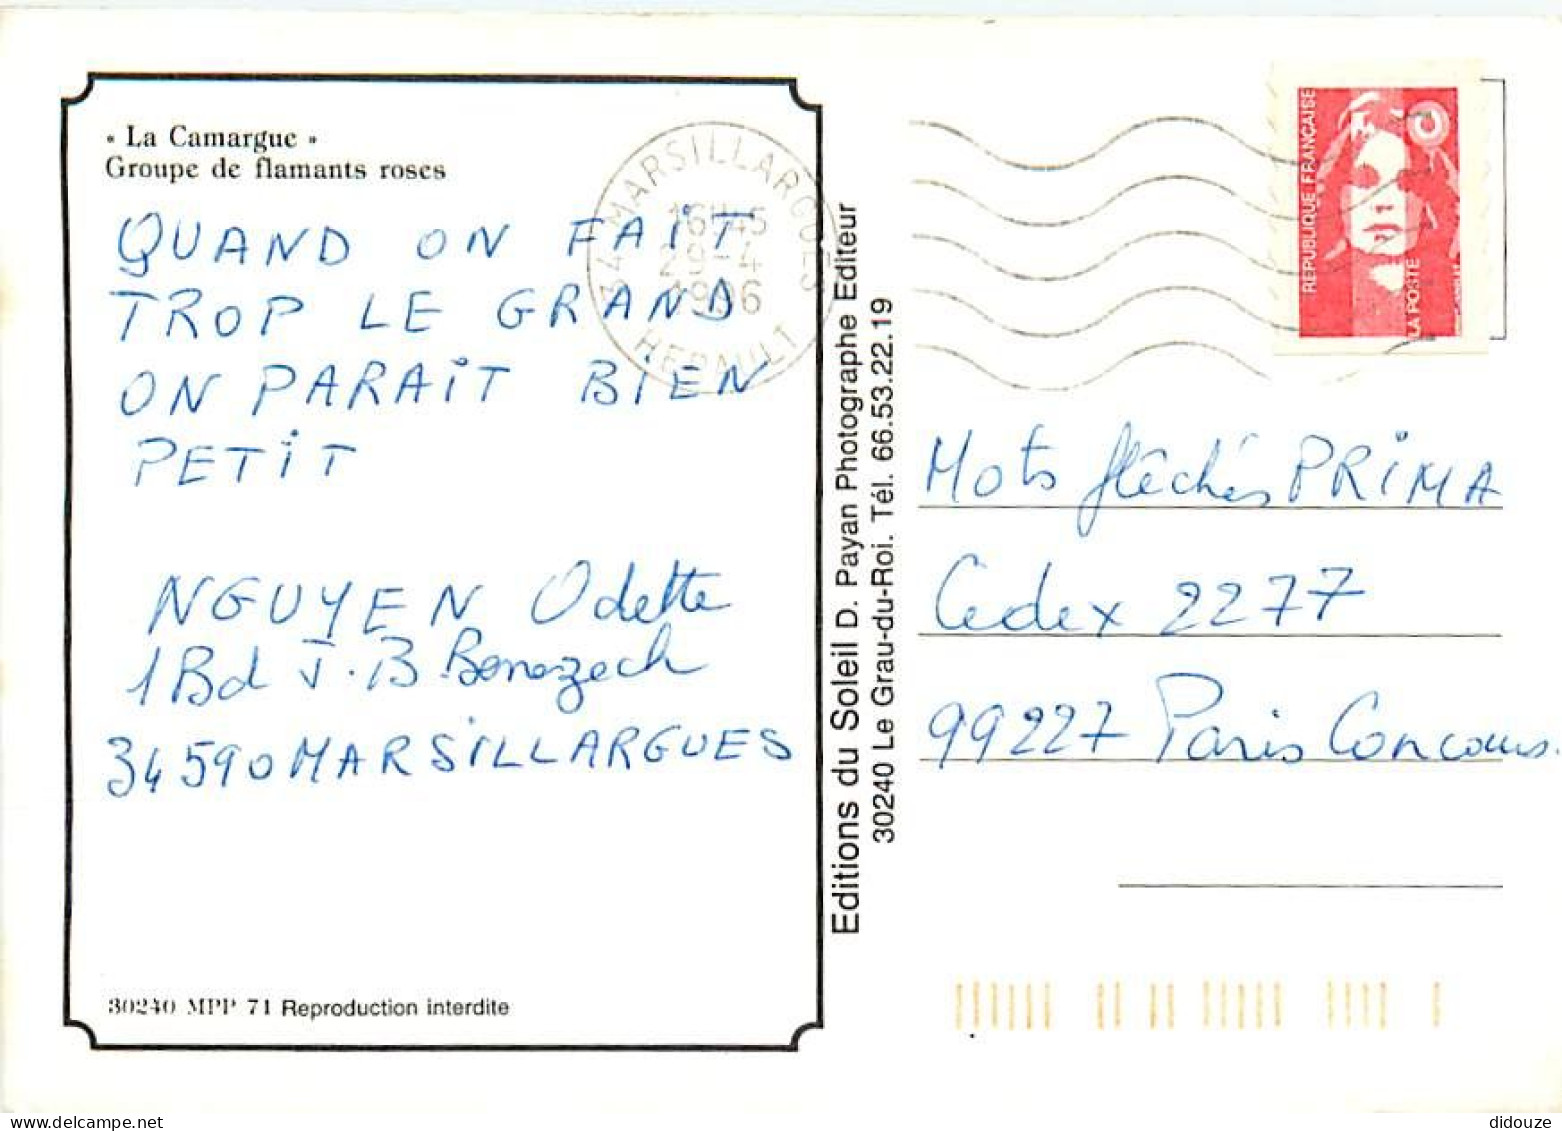 « La Camargue »
Groupe de flamants roses
QUAND ON FAIT
TROP LE GRAND
ON PARAIT BIEN
PETIT
NGUYEN Odette
1 Bd J.B. Benezech
34590 MARSILLARGUES
30240 MPP 71 Reproduction interdite
Editions du Soleil D. Payan Photographe Editeur
30240 Le Grau-du-Roi. Tél. 66.53.22.19
34 MARSILLARGUES
16H45
29-4
1996
HERAULT
REPUBLIQUE FRANÇAISE
LA POSTE
Mots fléchés PRIMA
Cedex 2277
99227 Paris Concours.
didouze